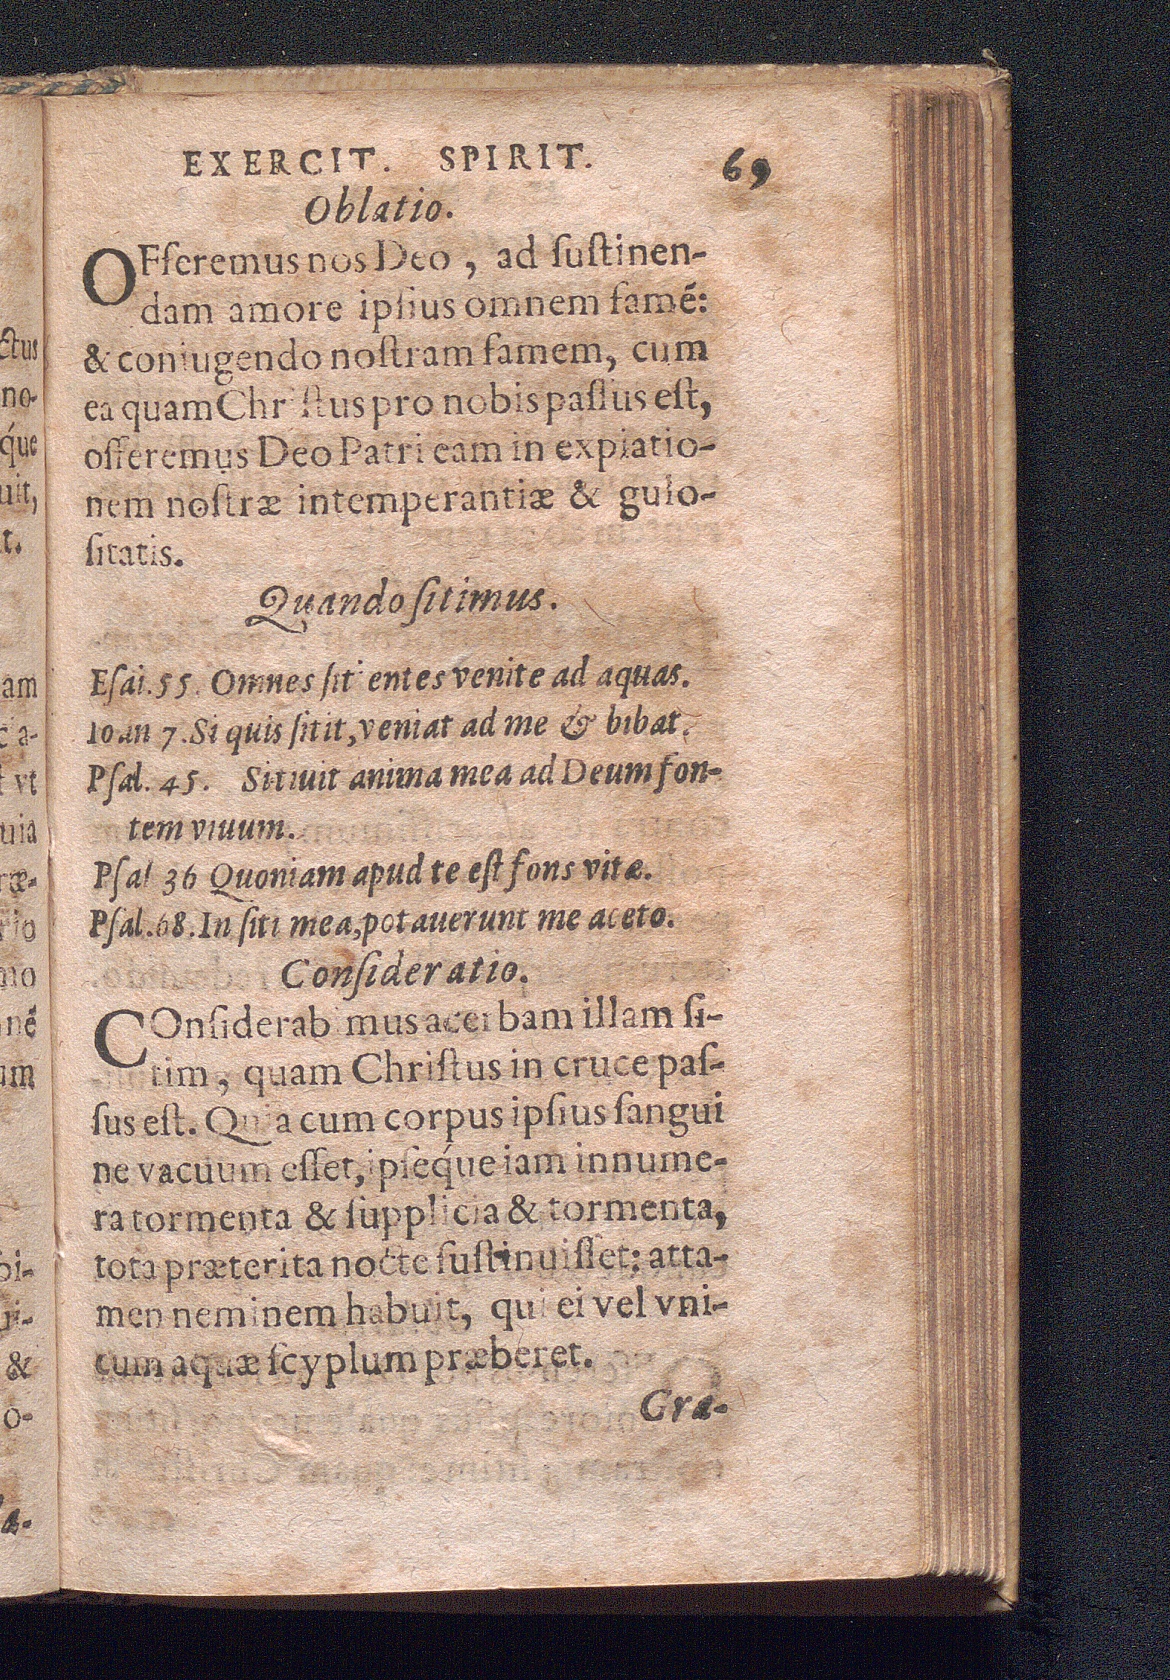 EXERCIT. SPIRIT. 69
Oblatio.
OFferemus nos Deo, ad ſuſtinen-
dam amore ipſius omnem famẽ:
& coniugendo noſtram famem, cum
ea quam Chriſtus pro nobis paſſus eſt,
offeremus Deo Patri eam in expiatio-
nem noſtræ intemperantiæ & gulo-
ſitatis.
Quando ſitimus.
Eſai. 55. Omnes ſitientes venite ad aquas.
Ioan 7. Si quis ſitit, veniat ad me & bibat.
Pſal. 45. Sitiuit anima mea ad Deum fon-
tem viuum.
Pſal 36 Quoniam apud te eſt fons vitæ.
Pſal. 68. In ſiti mea, potauerunt me aceto.
Conſideratio.
COnſiderabimus acerbam illam ſi-
tim, quam Chriſtus in cruce paſ-
ſus eſt. Quia cum corpus ipſius ſangui
ne vacuum eſſet, ipſeq́ue iam innume-
ra tormenta & ſupplicia & tormenta,
tota præterita nocte ſuſtinuiſſet: atta-
men neminem habuit, qui ei vel vni-
cum aquæ ſcyplum præberet.
Gra-
ctus
no-
q́ue
uit,
t.
am
c a-
t vt
uia
ræ-
rio
mo
nẽ
um
bi-
ri-
&
o-
la-